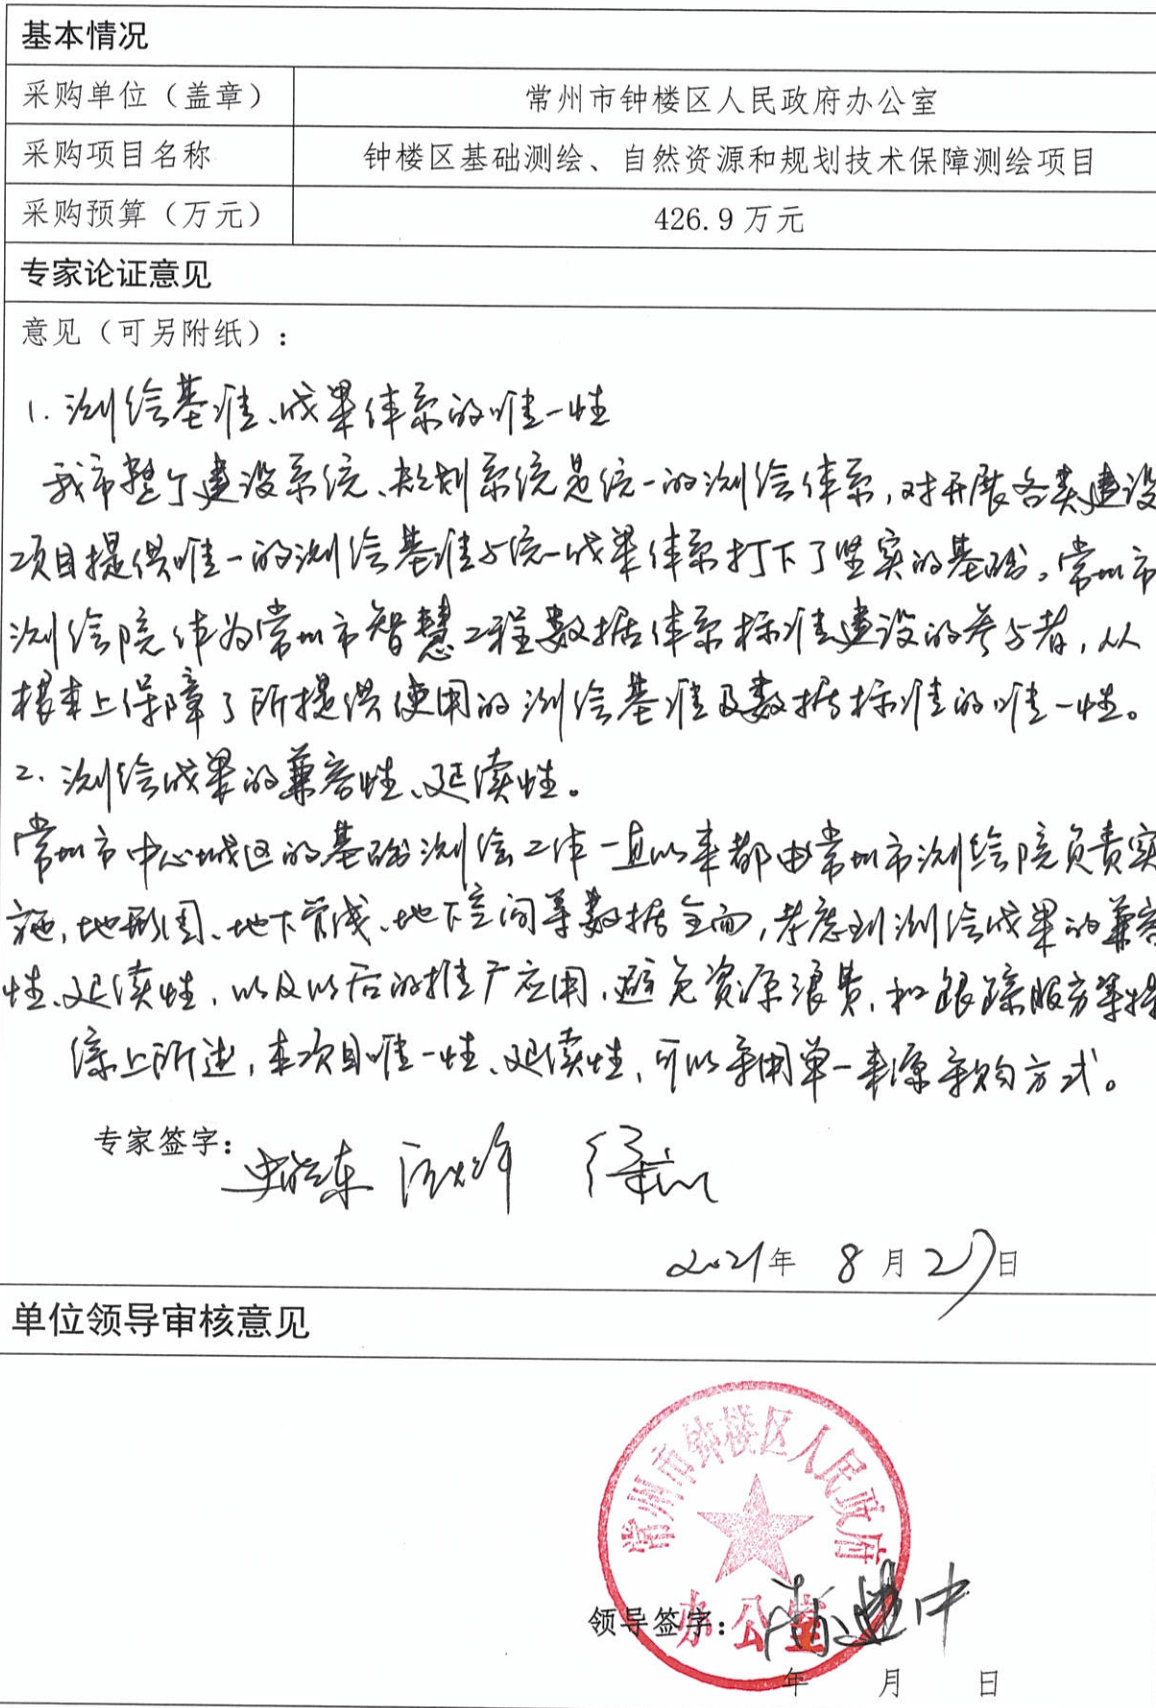 基本情况
采购单位（盖章） 常州市钟楼区人民政府办公室
采购项目名称 钟楼区基础测绘、自然资源和规划技术保障测绘项目
采购预算（万元） 426.9 万元
专家论证意见
意见（可另附纸）：
1. 测绘基准、成果体系的唯一性
我市整个建设系统、规划系统是统一的测绘体系，对开展各类建设
项目提供唯一的测绘基准与统一成果体系打下了坚实的基础。常州市
测绘院作为常州市智慧工程数据体系标准建设的参与者，从
根本上保障了所提供使用的测绘基准及数据标准的唯一性。
2. 测绘成果的兼容性、延续性。
常州市中心城区的基础测绘工作一直以来都由常州市测绘院负责实
施，地形图、地下管线、地下空间等数据全面，考虑到测绘成果的兼容
性、延续性，以及以后的推广应用，避免资源浪费，和跟踪服务等
综上所述，本项目唯一性、延续性，可以采用单一来源采购方式。
专家签字：
2021年 8 月 27 日
单位领导审核意见
常州市钟楼区人民政府
办公室
领导签字：
年 月 日